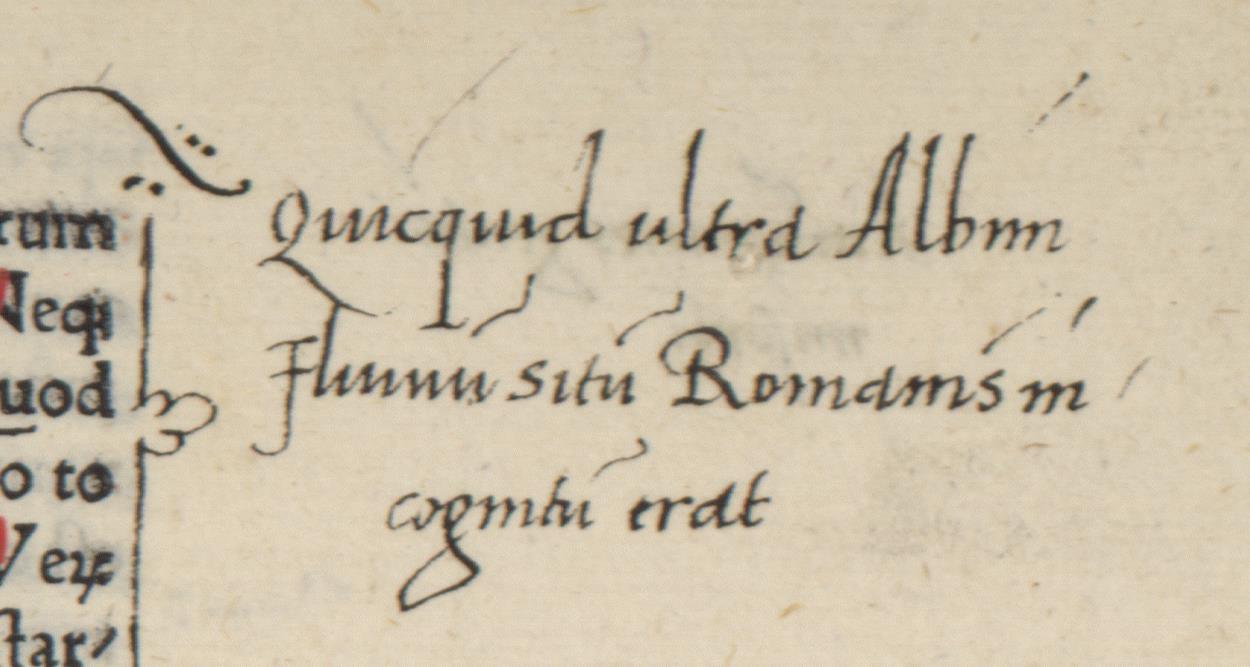 rum
Neqꝫ
uod
o to
Veꝝ
ſtar
Quicquid ultra Albim
Fluuiū sitū Romanis in
cognitū erat